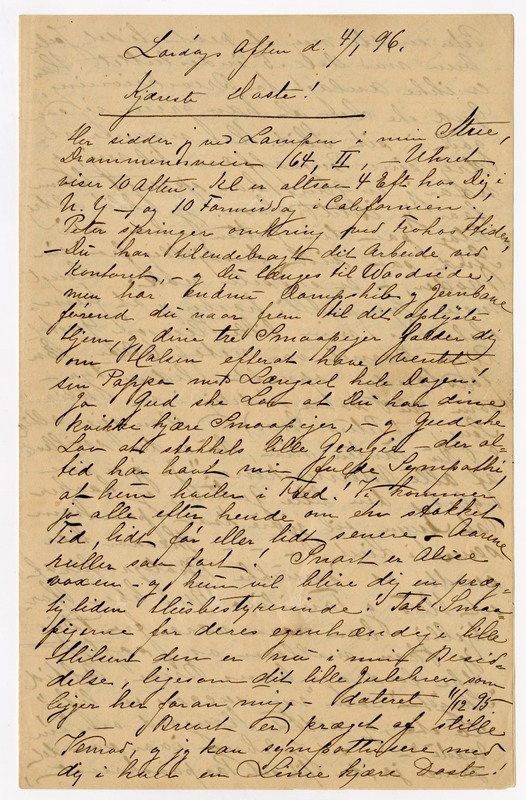 Lördags Aften d. 4/1 96.
Kjæreste Doste!
Her sidder jeg ved Lampen i min Stue,
Drammensveien 164, II, – Uhret
viser 10 Aften. Kl er altsaa 4 Eft. hos Dig i
N. Y – og 10 Formiddag i Californien.
Peter springer omkring ved Frokosttiden,
– Du har tilendebragt dit Arbeide ved
Kontoret, – og Du længes til Woodside,
men har endnu Dampskib og Jernbane
førend du naar frem til dit oplyste
Hjem, og dine tre Smaapiger falder dig
om Halsen efterat have ventet
sin Pappa med Længsel hele Dagen!
Ja Gud ske Lov at Du har dine
kvikke kjære Smaapiger, – og Gud ske
Lov at stakkels lille Georgie – der al-
tid har havt min fulde Sympathi
at hun hviler i Fred! Vi kommer
jo alle efter hende om en stakket
Tid, lidt før eller lidt senere – Aarene
ruller saa fort! Snart er Alice
voxen – og hun vil blive dig en præg-
tig liden Husbestyrerinde! Tak Smaa-
pigerne for deres egenhændige lille
Hilsen den er nu i min Besid-
delse, ligesom dit lille Julebrev som
ligger her foran mig, – dateret 11/12 95
Brevet er præget af stille
Vemod, og jeg kan sympathisere med
dig i hver en Linie kjære Doste!